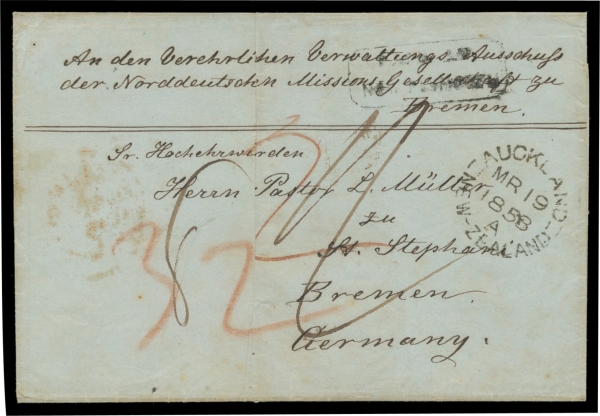 An den Verehrlihen Verwaltungs-Ausschuß
der Norddeutschn Missions-Gesellschaft zu
Bremen.
Sr. Hochehrwürden
Herrn Pastor L. Müller
zu
St. Stephani
Bremen.
Germany.
AUCKLAND
MR 19
1858
A
NEW-ZEALAND
32